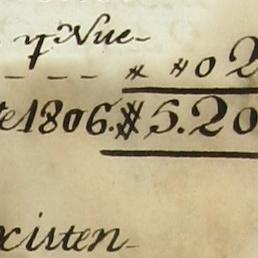 y Nue-
---** 02
te 1806. $5.20
xisten-